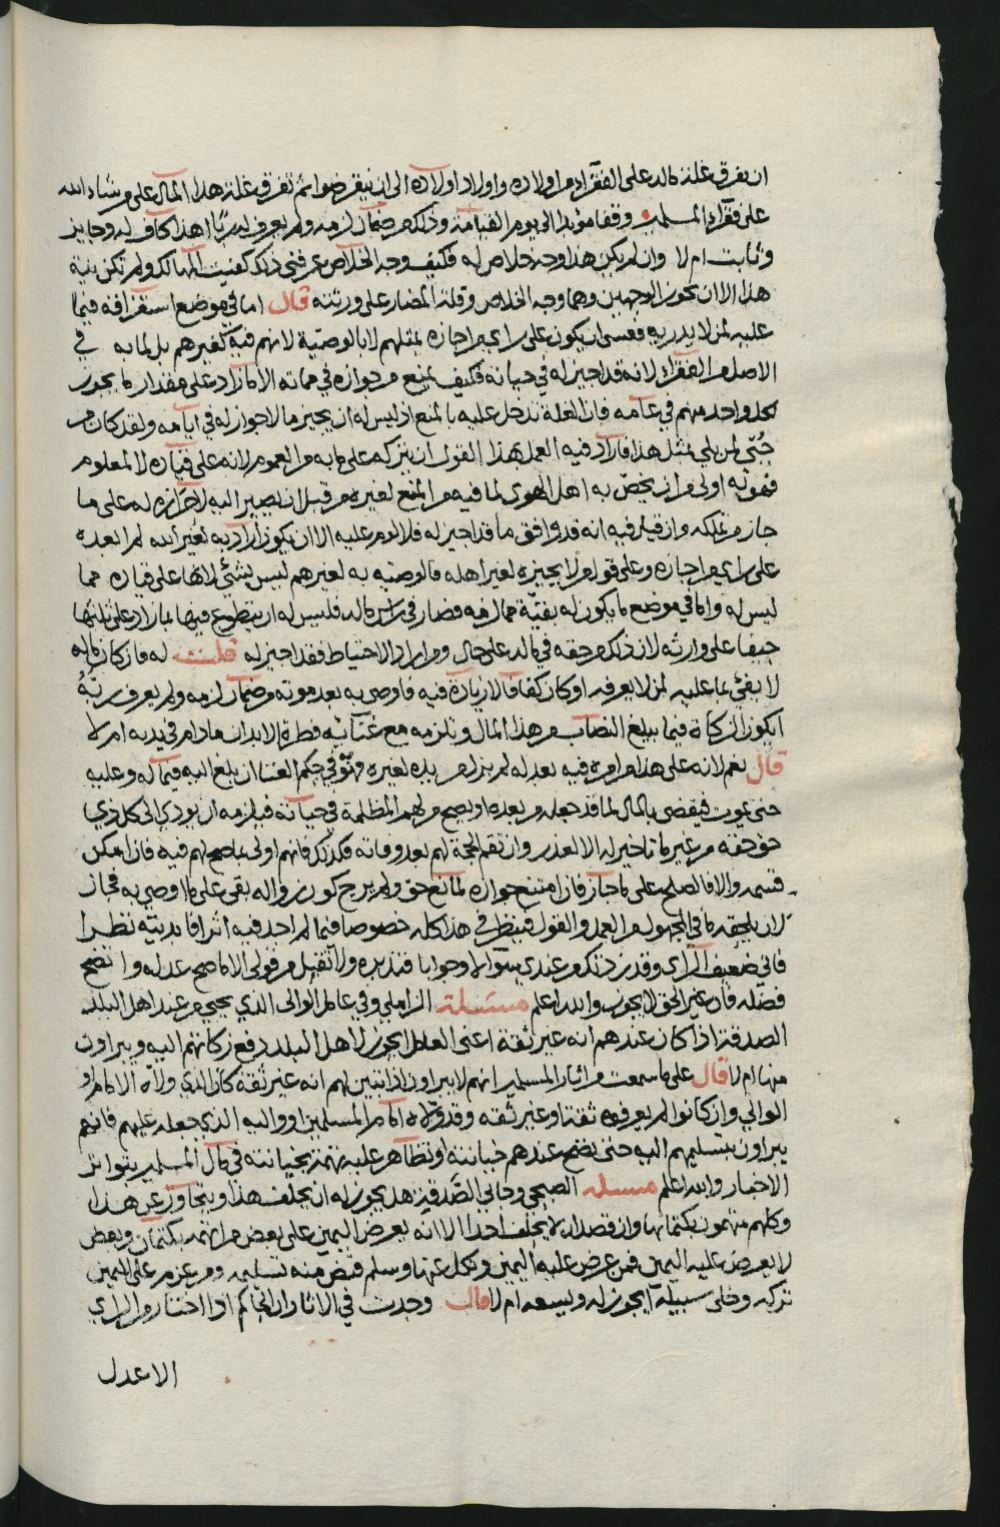 ان يفرق غلة ماله على الفقراء من اولاده واولاد اولاده الى ان ينقرضوا ثم تفرق غلة هذا المال على من شاء الله
على فقراء المسلمين وقفا مؤبدا الى يوم القيامة وذلك من ضمان لزمه ولم يعرف له ربّا اهذا كاف له وجايز
وثابت ام لا وان لم يكن هذا وجه خلاص له فكيف وجه الخلاص عرفني ذلك كفيت المهالك ولم تكن نية
هذا الا ان يحوز الوجهين وهما وجه الخلاص وقلة المضار على ورثته قال اما في موضع استغراقه فيما
عليه لمن لا يدريه فعسى ان يكون على راي من اجازه لمثلهم لا بالوصية لانهم فيه كغيرهم بل لما به في
الاصل من الفقراء لانه قد اجيز له في حياته فكيف يمنع من جوازه في مماته الا ما زاد على مقدار ما يجوز
لكل واحد منهم في عامه فان العلة تدخل عليه بالمنع اذ ليس له ان يجيز ما لا جواز له في ايامه ولقد كان من
حُبّي لمن بلي بمثل هذا فاراد فيه العمل بهذا القول ان يتركه على ما به من العموم لانه على قياده لا لمعلوم
فهو به اولى من ان يخص به اهل الهوى لما فيه من المنع لغيره من قبل ان يصير اليه لاحرازه له على ما
جاز من تملكه وان قيل فيه انه قد وافق ما قد اجيز له فلا لوم عليه الا ان يكون اراد به لغير الله لم ابعده
على راي من اجازه وعلى قول من لا يجيزه لغير اهله فالوصية به لغيرهم ليس بشيء لانها على قياده مما
ليس له واما في موضع ما يكون له بقيّة مما لزمه فصار في راس ماله فليس له ان يتطوع فيها بما زاد على ثلثها
حيفا على وارثه لان ذلك من حقه في ماله على حال ومن اراد الاحتياط فقد اجيز له قلت له فان كان ماله
لا يفي بما عليه لمن لا يعرفه او كان كفافا لا زيادة فيه فاوصى به بعد موته من ضمان لزمه ولم يعرف ربّهُ
ايكون الزكاة فيما يبلغ النصاب من هذا المال وتلزمه مع غنائه فطرة الابدان ما دام في يده ام لا
قال نعم لانه على هذا من امره فيه بعد له لم يزل من يده لغيره فهو في حكم الغنا ان بلغ اليه فيما له وعليه
حتى يموت فيقضى بالمال لما قد جعله من بعده او يصح من لهم المظلمة في حياته فيلزمه ان يودي الى كل ذي
حق حقه من غير ما تاخير له الا لعذر وان تقم الحجة لهم بعد وفاته فكذلك فانهم اولى بما صح لهم فيه فان امكن
قسمه والا فالصلح على ما جاز فان امتنع جوازه لمانع حق ولم يرج كون زواله بقي على ما اوصى به فجاز
لان يلحقه ما في المجهول من العمل والقول فينظر في هذا كله خصوصا فيما لم اجد فيه اثرا فابديته نظرا
فاني ضعيف الراي وقد زدتكم من عندي سؤالا وجوابا فتدبره ولا تقبل من قولي الا ما صح عدله واتضح
فضله فان غير الحق لا يجوز والله اعلم مسئلة الزاملي وفي عامل الوالي الذي يجيء من عند اهل البلد
الصدقة اذا كان عندهم انه غير ثقة اعني العامل ايجوز لاهل البلد دفع زكاتهم اليه ويبراون
منها ام لا قال على ما سمعت من اثار المسلمين انهم لا يبراون اذا تبين لهم انه غير ثقة كان الذي ولاه الامام او
الوالي وان كانوا لم يعرفوه ثقة او غير ثقة وقد ولاه امام المسلمين او واليه الذي جعله عليهم فانهم
يبراون بتسليمهم اليه حتى يصح عندهم خيانته او تظاهر عليه تهمة بخيانته في مال المسلمين بتواتر
الاخبار والله اعلم مسئلة الصبحي وجابي الصّدقة هل يجوز له ان يحلف هذا ويتجاوز عن هذا
وكلهم متهمون بكتمانها وان قصد ان لا يحلف احدا الا انه يعرض اليمين على بعض من اتهمه بكتمان وبعض
لا يعرض عليه اليمين فمن عرض عليه اليمين ونكل عنها وسلم قبض منه تسليمه ومن عزم على اليمين
تركه وخلى سبيله ايجوز له ويسعه ام لا قال وجدت في الاثار ان الحاكم اذا اختار من الراي
الاعدل